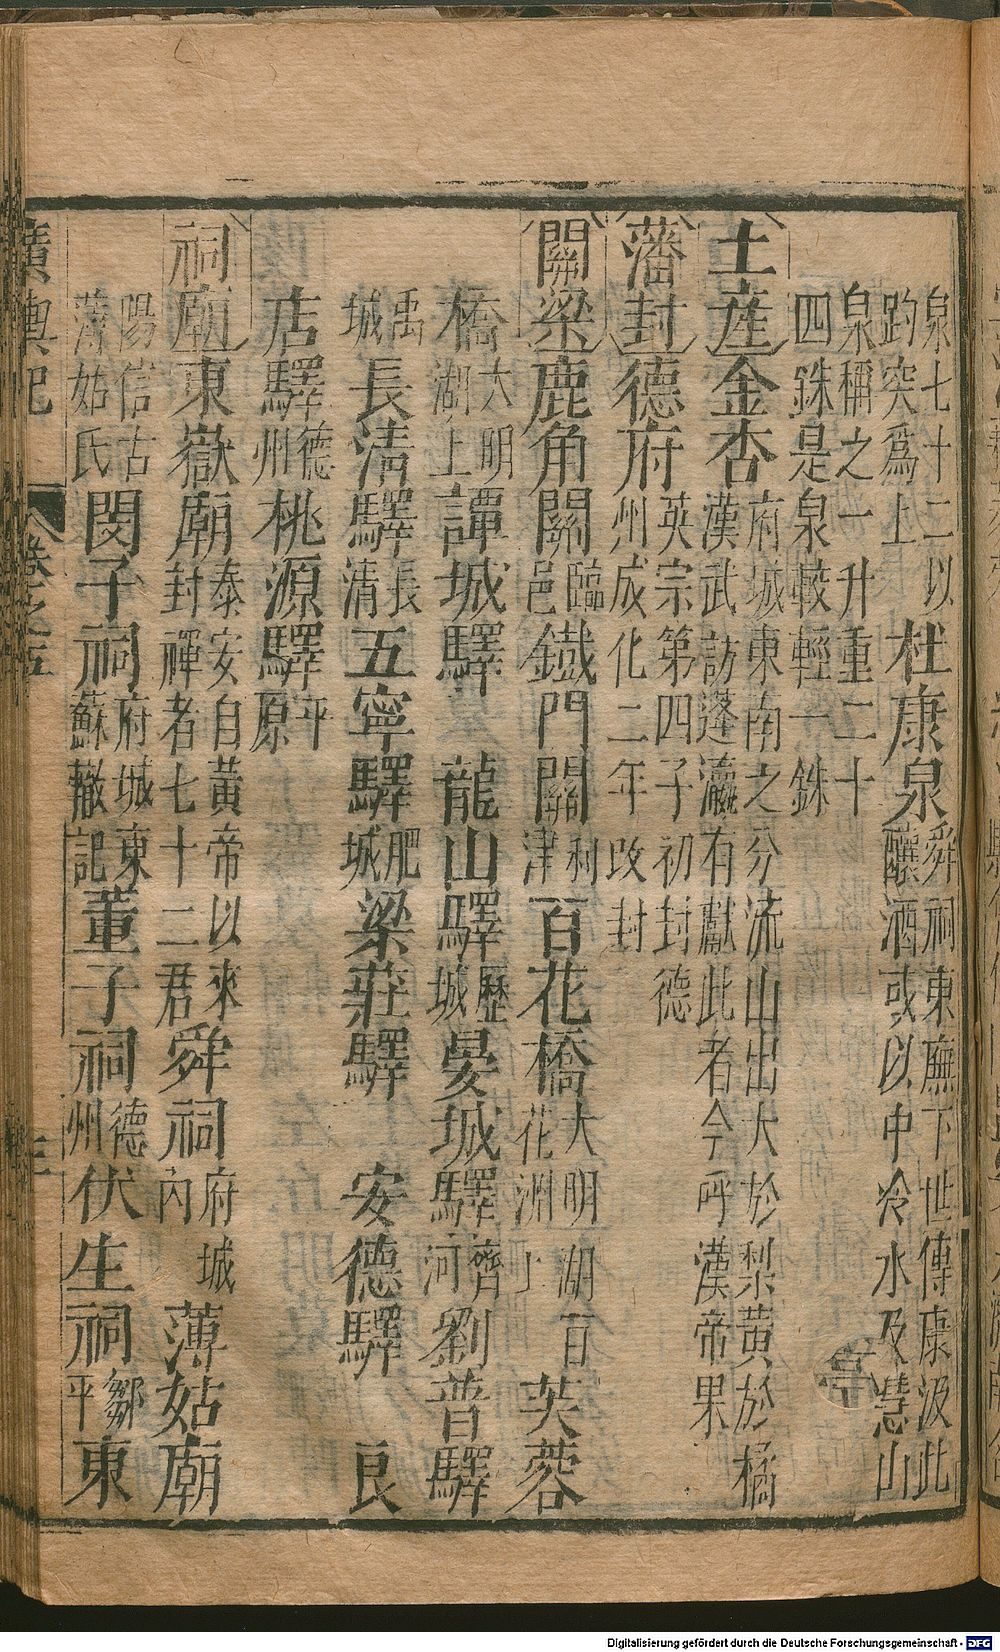 泉七十二以
趵突爲上
杜康泉
舜祠東廡下世傳康汲此
釀酒或以中冷水及慧山
泉稱之一升重二十
四銖是泉較輕一銖
土產
金杏
府城東南之分流山出大於梨黃於橘
漢武訪蓬瀛有獻此者今呼漢帝果
藩封
德府
英宗第四子初封德
州成化二年改封
關梁
鹿角關
臨
邑
鐵門關
利
津
百花橋
大明湖百
花洲上
芙蓉
橋
大明
湖上
譚城驛
龍山驛
歷
城
晏城驛
齊
河
劉普驛
禹
城
長清驛
長
清
五寧驛
肥
城
梁莊驛
安德驛
良
店驛
德
州
桃源驛
平
原
祠廟
東嶽廟
泰安自黃帝以來
封禪者七十二君
舜祠
府城
內
薄姑廟
陽信古
薄姑氏
閔子祠
府城東
蘇轍記
董子祠
德
州
伏生祠
鄒
平
東
廣輿記
卷之五
Digitalisierung gefördert durch die Deutsche Forschungsgemeinschaft - DFG